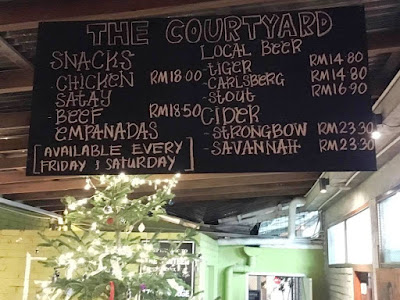 THE COURTYARD
SNACKS
- CHICKEN SATAY RM18.00
- BEEF EMPANADAS RM18.50
[AVAILABLE EVERY FRIDAY & SATURDAY]
LOCAL BEER
- TIGER RM14.80
- CARLSBERG RM14.80
- STOUT RM16.90
CIDER
- STRONGBOW RM23.30
- SAVANNAH RM23.30